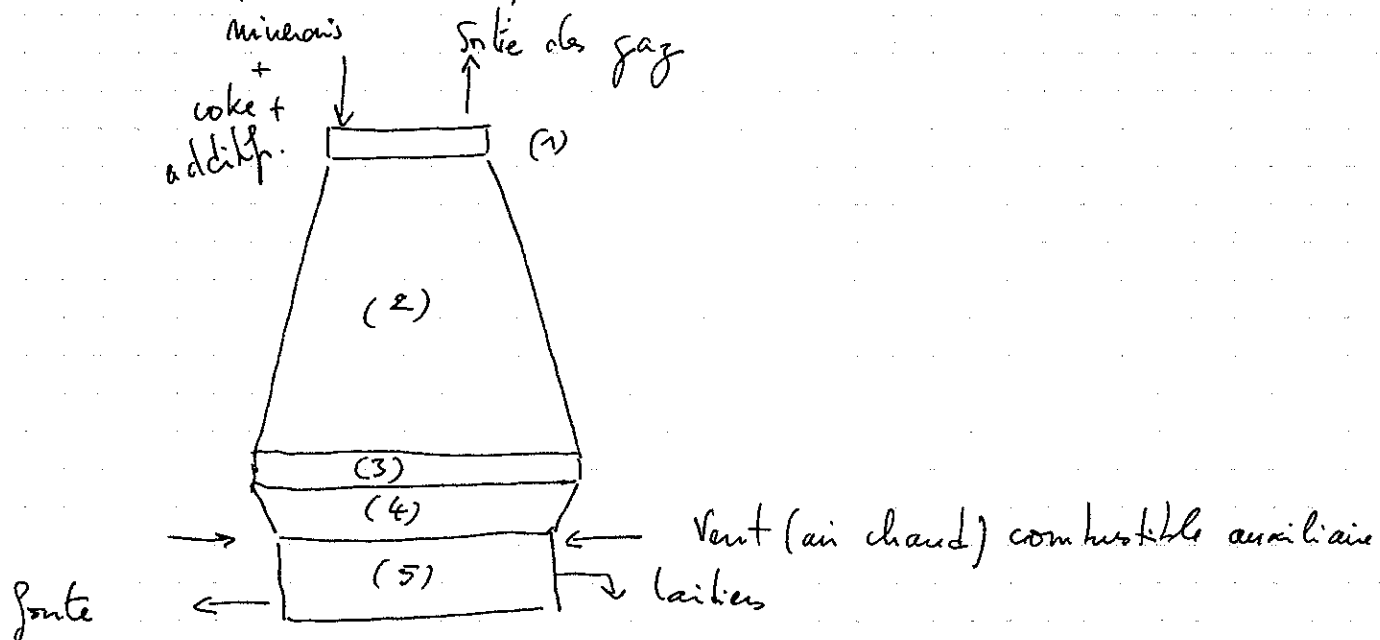 minerais
+
coke +
additif.
Sortie des gaz
(1)
(2)
(3)
(4)
Vent (air chaud) combustible auxiliaire
(5)
laitiers
fonte